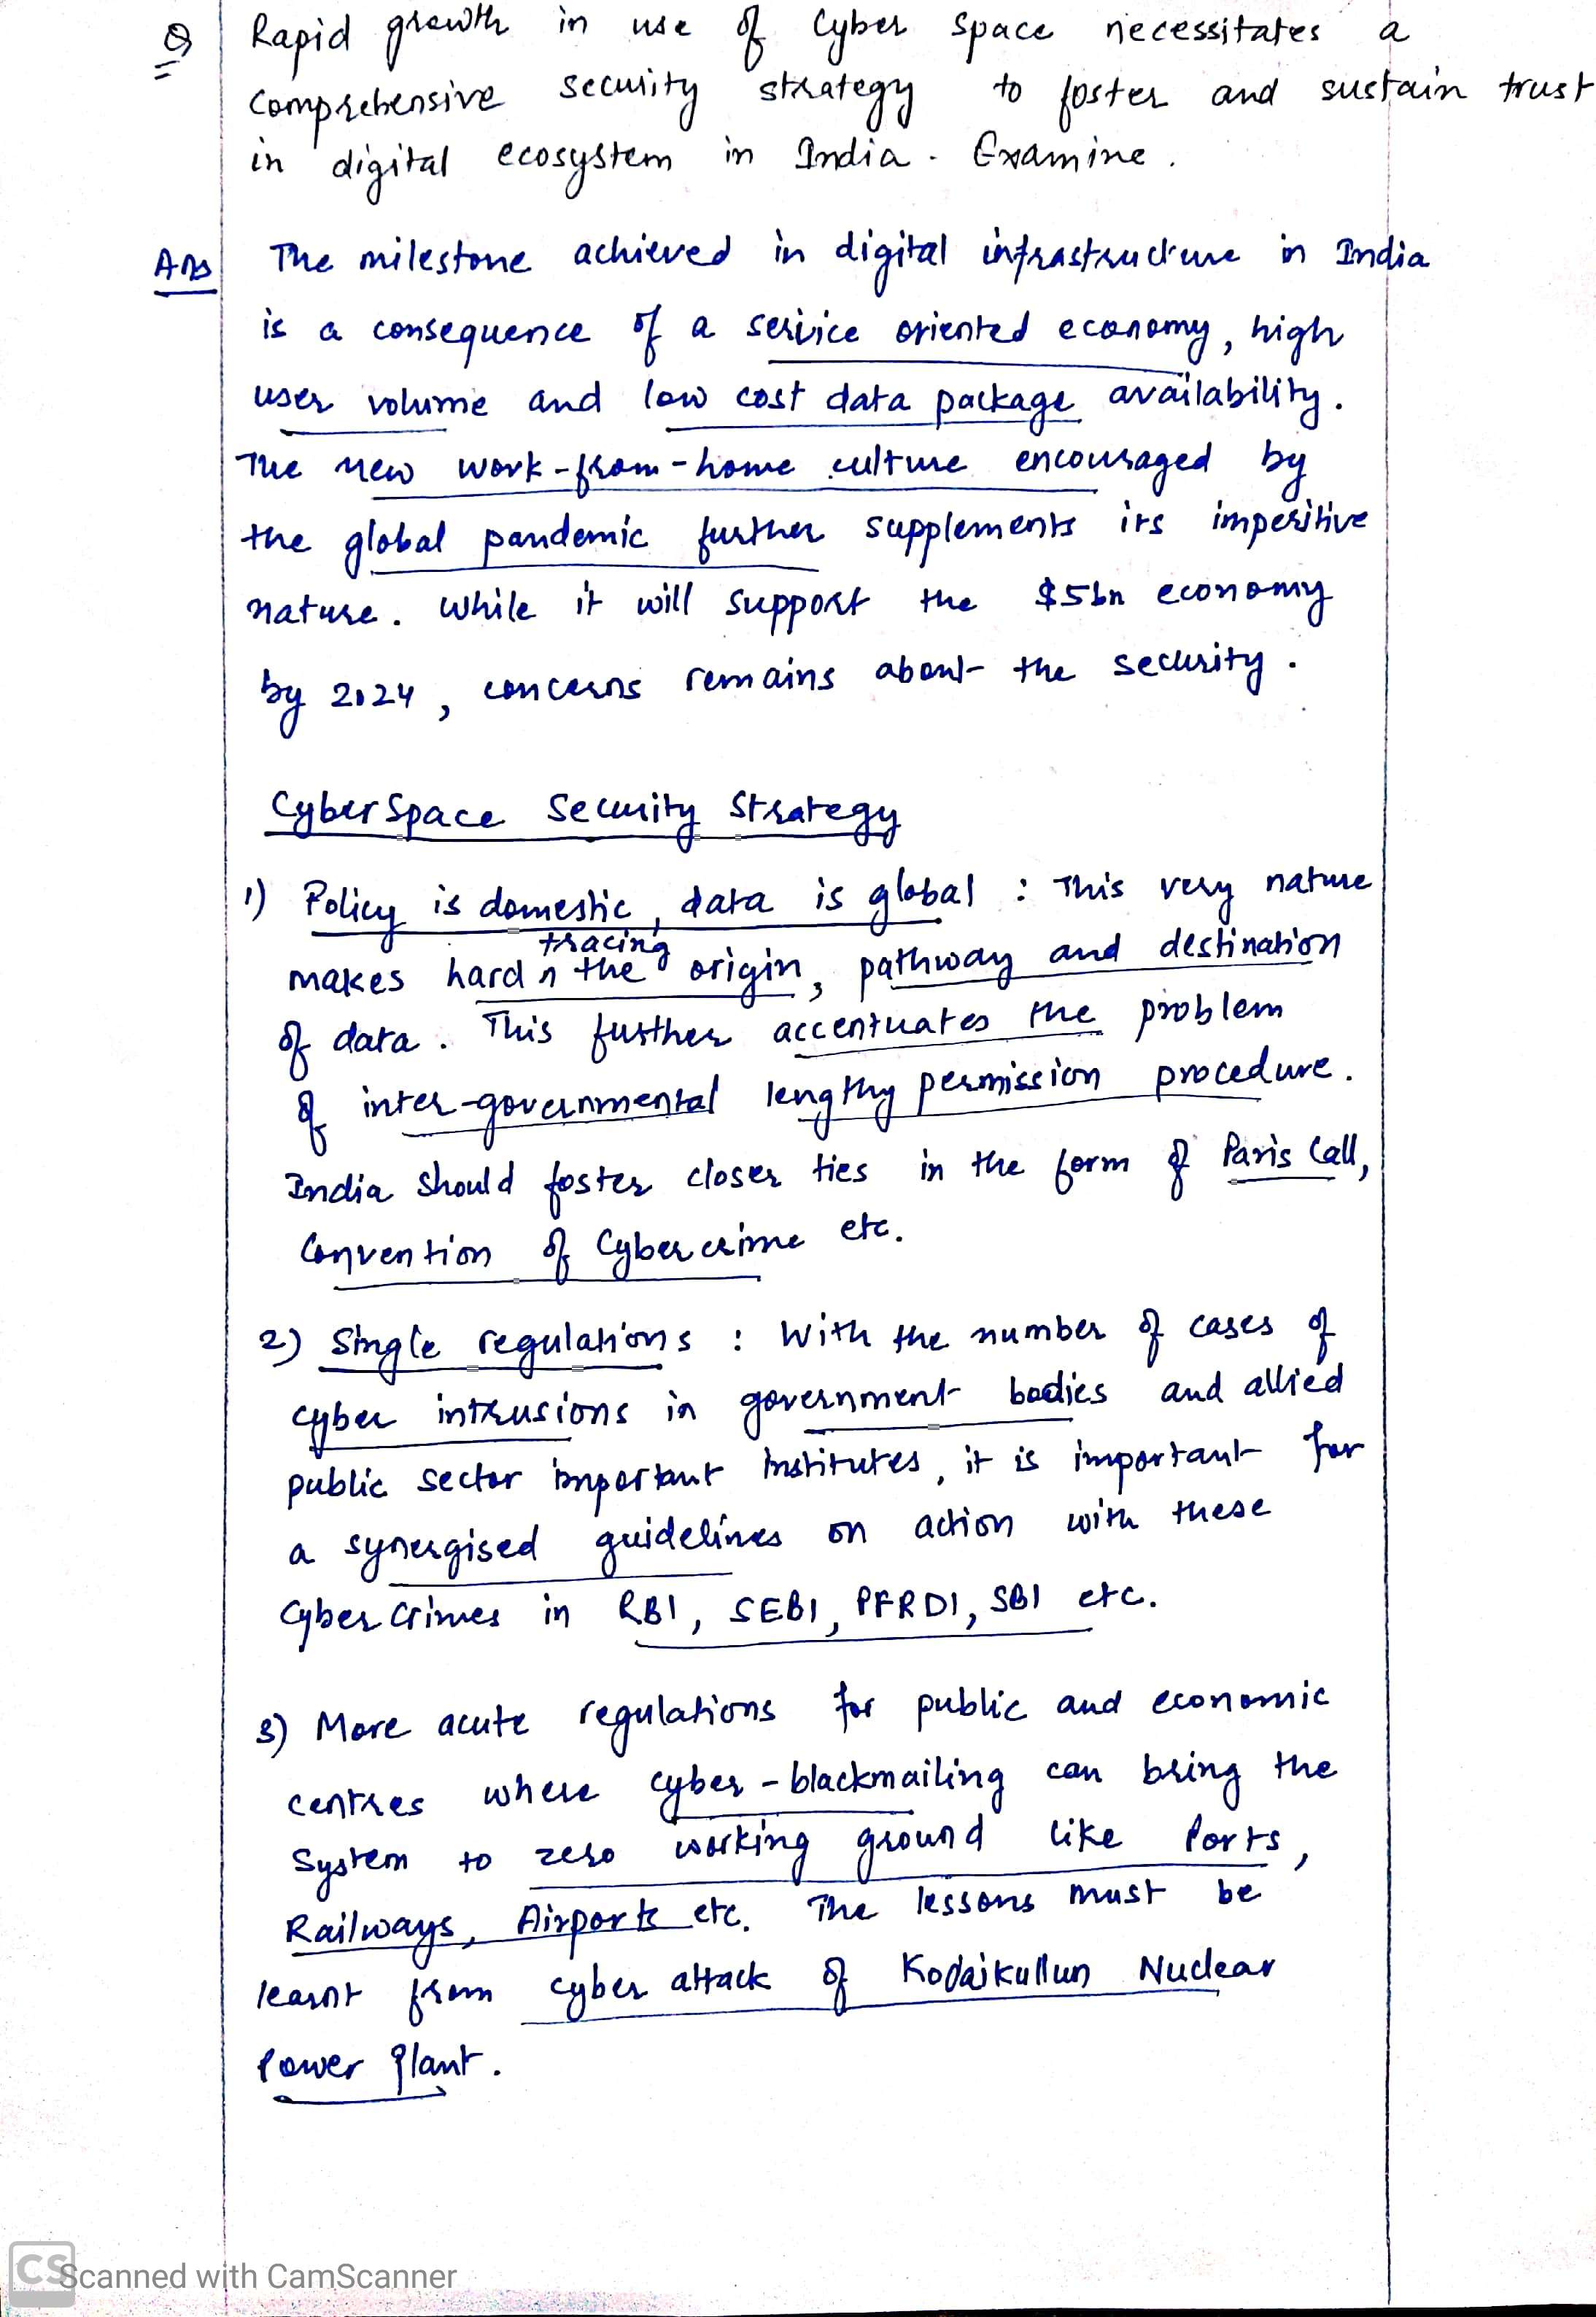 Q Rapid growth in use of Cyber Space necessitates a
comprehensive security strategy to foster and sustain trust
in digital ecosystem in India. Examine.
Ans The milestone achieved in digital infrastructure in India
is a consequence of a service oriented economy, high
user volume and low cost data package availability.
The new work-from-home culture encouraged by
the global pandemic further supplements its imperitive
nature. While it will support the $5bn economy
by 2024, concerns remains about the security.
Cyber Space Security Strategy
1) Policy is domestic, data is global : This very nature
tracing
makes hard the origin, pathway and destination
of data. This further accentuates the problem
of inter-governmental lengthy permission procedure.
India should foster closer ties in the form of Paris Call,
Convention of Cybercrime etc.
2) Single regulations : With the number of cases of
cyber intrusions in government bodies and allied
public sector important institutes, it is important for
a synergised guidelines on action with these
Cyber Crimes in RBI, SEBI, PFRDI, SBI etc.
3) More acute regulations for public and economic
centres where cyber-blackmailing can bring the
System to zero working ground like Ports,
Railways, Airports etc. The lessons must be
learnt from cyber attack of Kodaikullun Nuclear
Power Plant.
CS Scanned with CamScanner